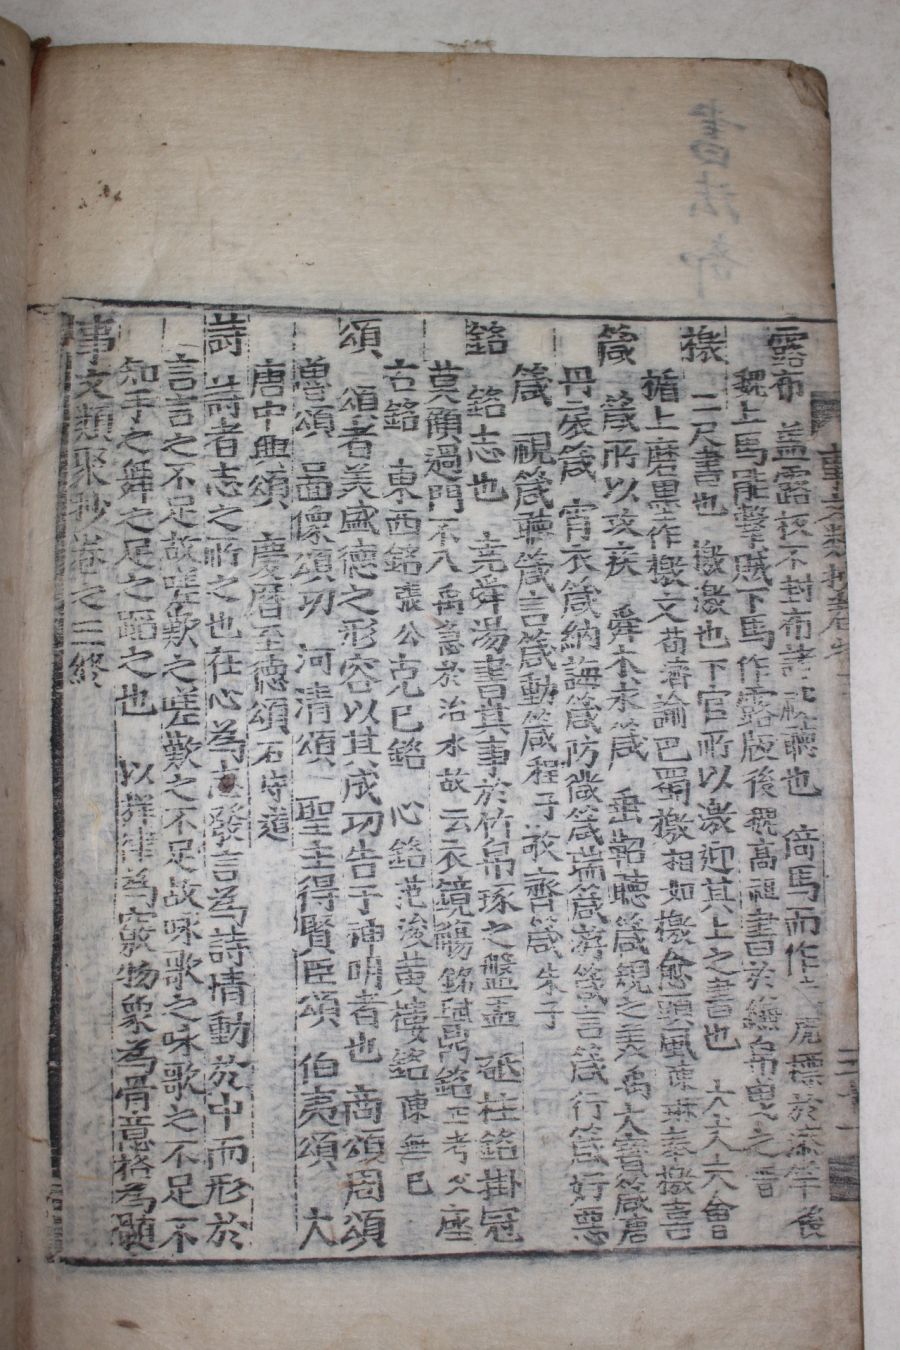 露布 盖露板不封布諸視聽也 倚馬而作 虎 於漆竿 後
魏上馬能擊賊下馬作露版 後魏高祖 書於
檄 二尺書也 檄激也下官所以激迎其上之書也
楯上磨墨作檄文 荀濟 諭巴蜀檄 相如 檄愈頭風 陳琳 奉檄喜
箴 箴所以攻疾 舜木求箴 垂韜聽箴 規之美 禹 大寶箴 唐
丹扆箴 宵衣箴 納誨箴 防微箴 瑞箴 游箴 言箴 行箴 好惡
箴 視箴 聽箴 言箴 動箴 程子 敬齋箴 朱子
銘 銘志也 堯舜湯書其事於竹帛琢之盤盂 砥柱銘 掛冠
莫顧過門不入 禹急於治水故云 衣鏡觴銘 鬲銘 正考父 座
右銘 東西銘 張公 克己銘 心銘 范浚 黃樓銘 陳無已
頌 頌者美盛德之形容以其成功告于神明者也 商頌 周頌
魯頌 啚像頌功 河淸頌 聖主得賢臣頌 伯夷頌 大
唐中興頌 慶曆至德頌 石守道
詩 詩者志之所之也在心為志發言為詩情動於中而形於
言言之不足故嗟歎之嗟歎之不足故咏歌之咏歌之不足不
知手之舞之足之蹈之也 以 為 物象為骨意格為髓
事文類聚抄卷之三終
事文類抄卷之三
書法部